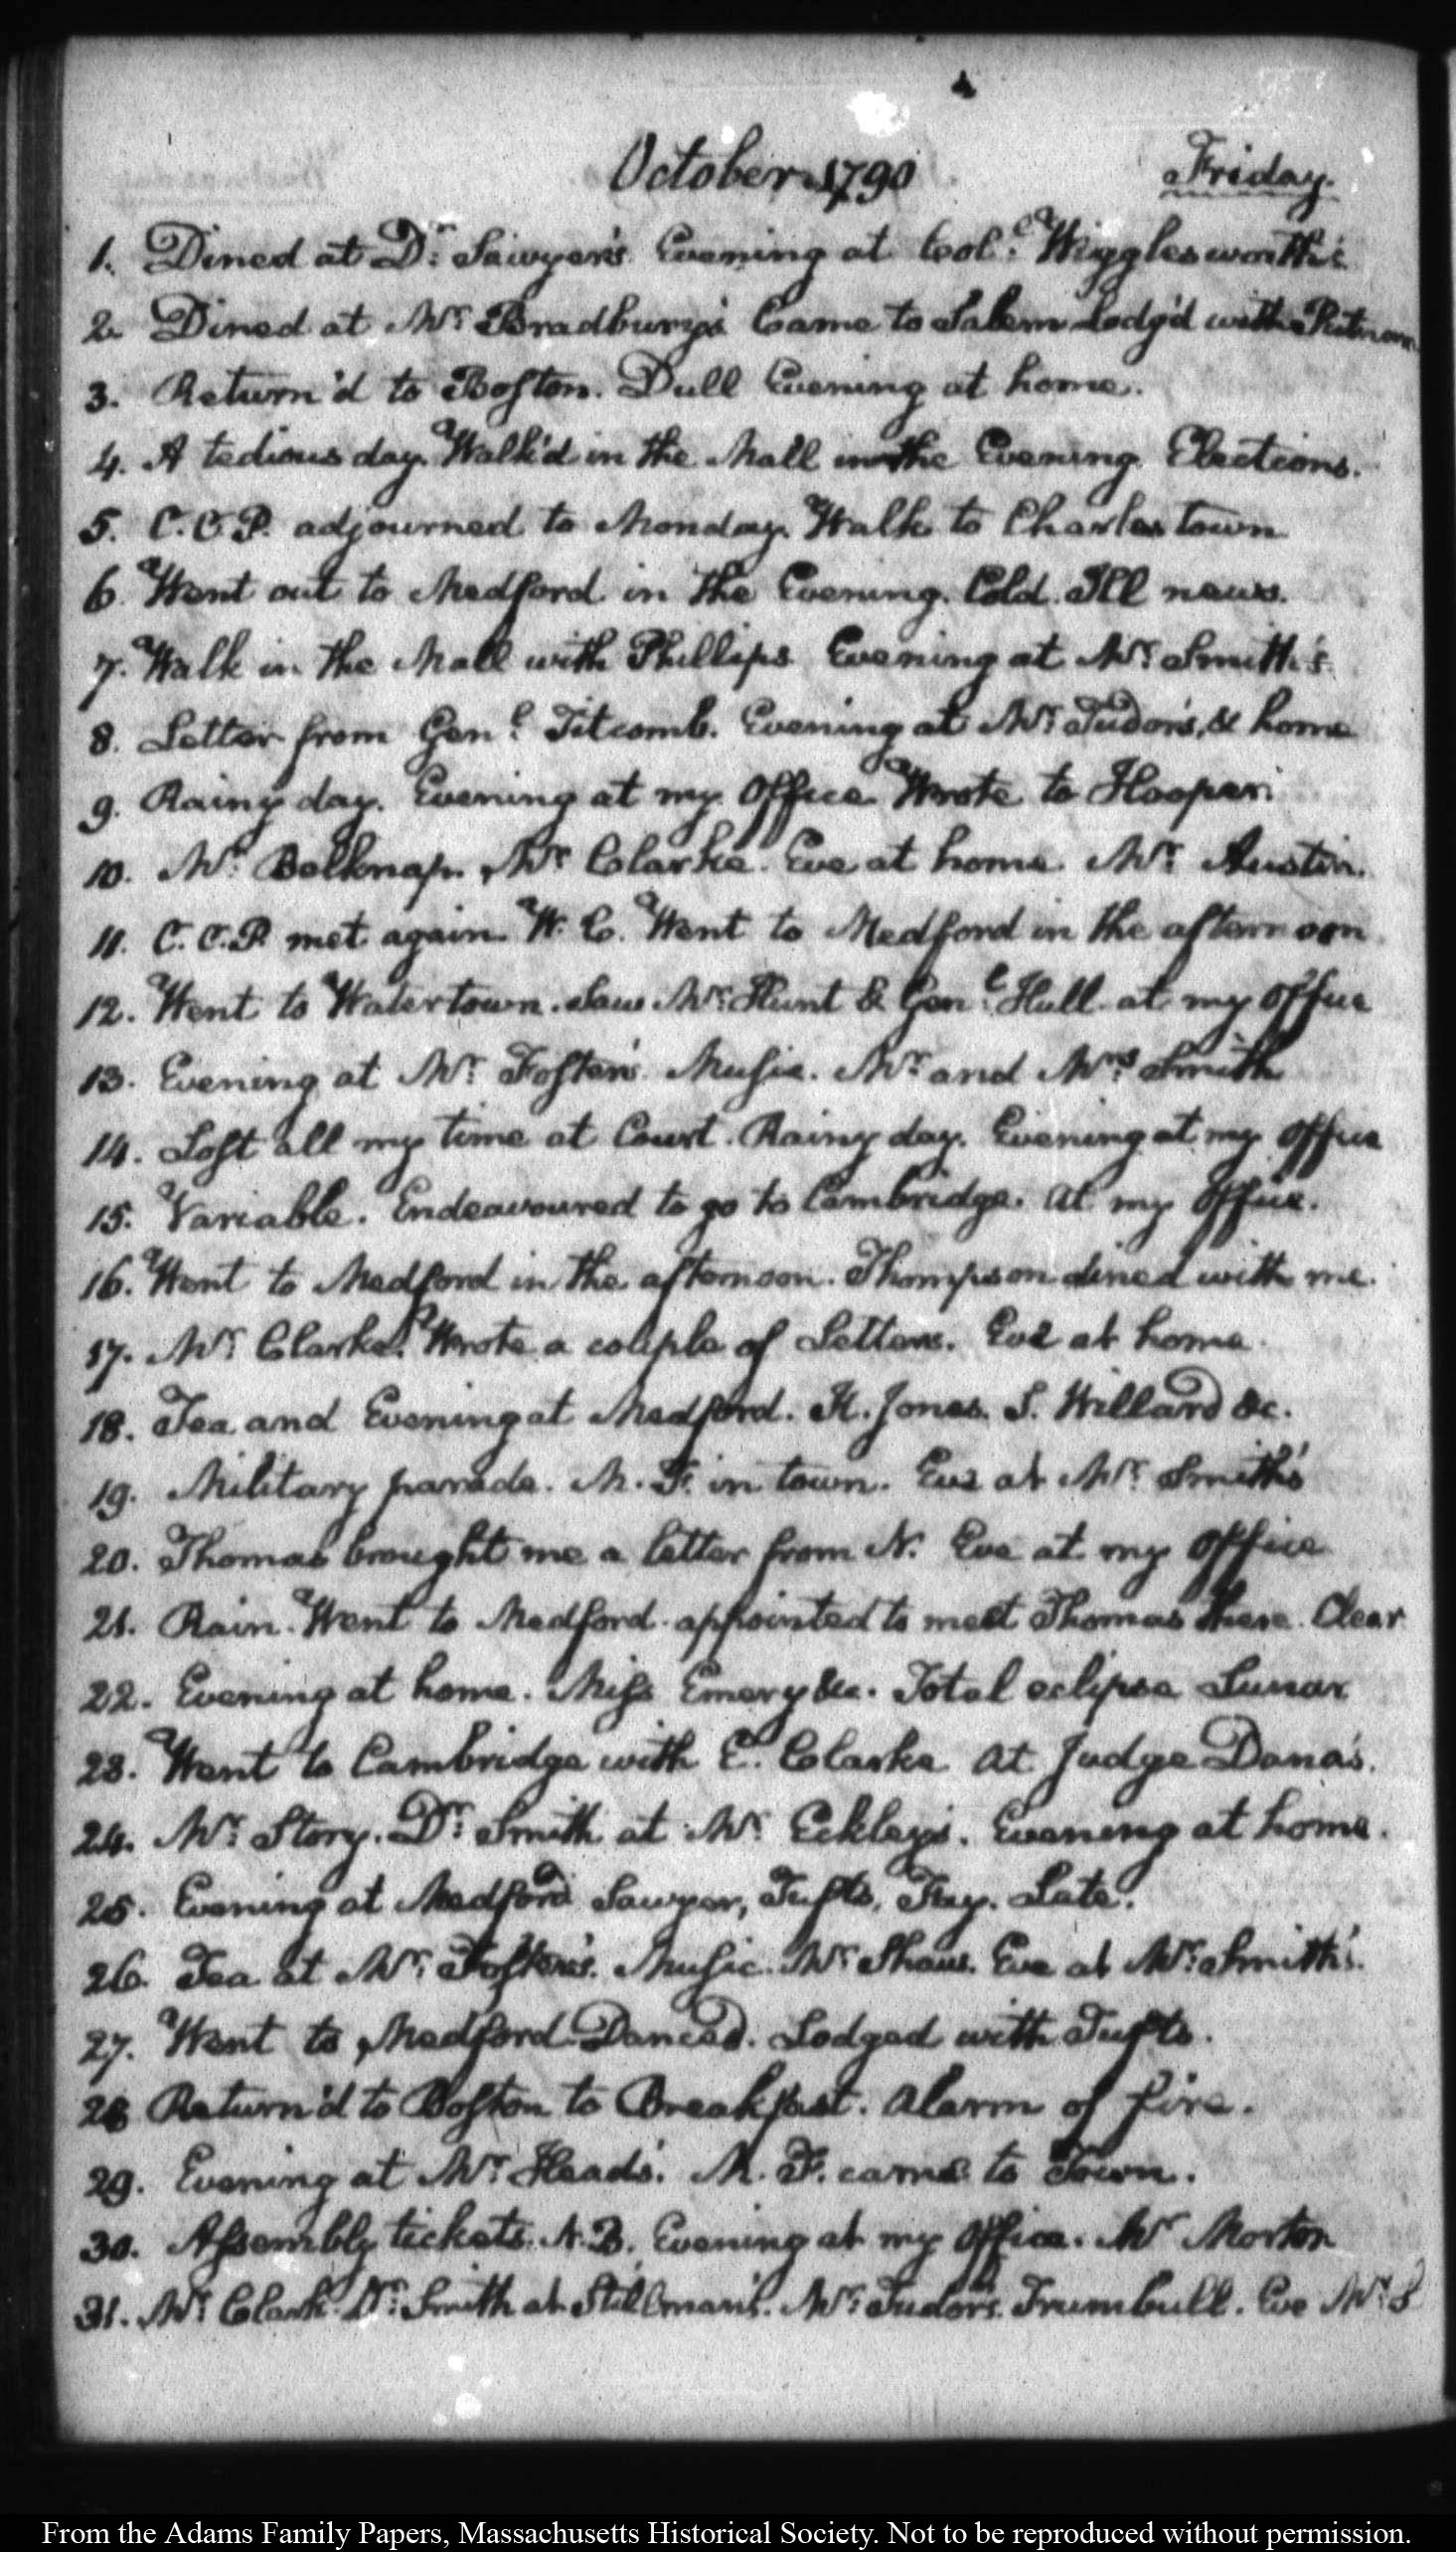 October 1790 Friday.
1. Dined at Dr. Sawyer's Evening at Col.l Wigglesworth's
2. Dined at Mr. Bradbury's Came to Salem Lodg'd with Putnam
3. Return'd to Boston. Dull Evening at home.
4. A tedious day. Walk'd in the Mall in the Evening. Elections.
5. C.C.P. adjourned to Monday. Walk to Charlestown
6. Went out to Medford in the Evening. Cold. Ill news.
7. Walk in the Mall with Phillips Evening at Mr. Smith's
8. Letter from Gen.l Titcomb. Evening at Mr. Tudor's, & home
9. Rainy day. Evening at my Office Wrote to Hooper.
10. Mr. Belknap. Mr. Clarke. Eve at home. Mr. Austin.
11. C.C.P. met again. W. C. Went to Medford in the afternoon.
12. Went to Watertown. Saw Mr. Hunt & Gen.l Hull. at my Office
13. Evening at Mr. Foster's. Music. Mr. and Mrs. Smith
14. Lost all my time at Court. Rainy day. Evening at my Office
15. Variable. Endeavoured to go to Cambridge. at my Office.
16. Went to Medford in the afternoon. Thompson dined with me.
17. Mr. Clarke. Wrote a couple of Letters. Eve at home.
18. Tea and Evening at Medford. K. Jones. S. Willard &c.
19. Military parade. M. F. in town. Eve at Mr. Smith's
20. Thomas brought me a letter from N. Eve at my Office
21. Rain. Went to Medford. appointed to meet Thomas there. Clear
22. Evening at home. Miss Emery &c. Total eclipse Lunar
23. Went to Cambridge with E. Clarke at Judge Dana's.
24. Mr. Story. Dr. Smith at Mr. Eckley's. Evening at home.
25. Evening at Medford Sawyer, Tufts, Fay. Late.
26. Tea at Mr. Foster's. Music. Mr. Shaw. Eve at Mr. Smith's.
27. Went to Medford. Danced. Lodged with Tufts.
28 Return'd to Boston to Breakfast. Alarm of fire.
29. Evening at Mr. Head's. M. F. came to Town.
30. Assembly tickets. N. B. Evening at my Office. Mr. Morton
31. Mr. Clark. Dr. Smith at Stillman's. Mr. Tudor's. Trumbull. Eve Mr. S
From the Adams Family Papers, Massachusetts Historical Society. Not to be reproduced without permission.